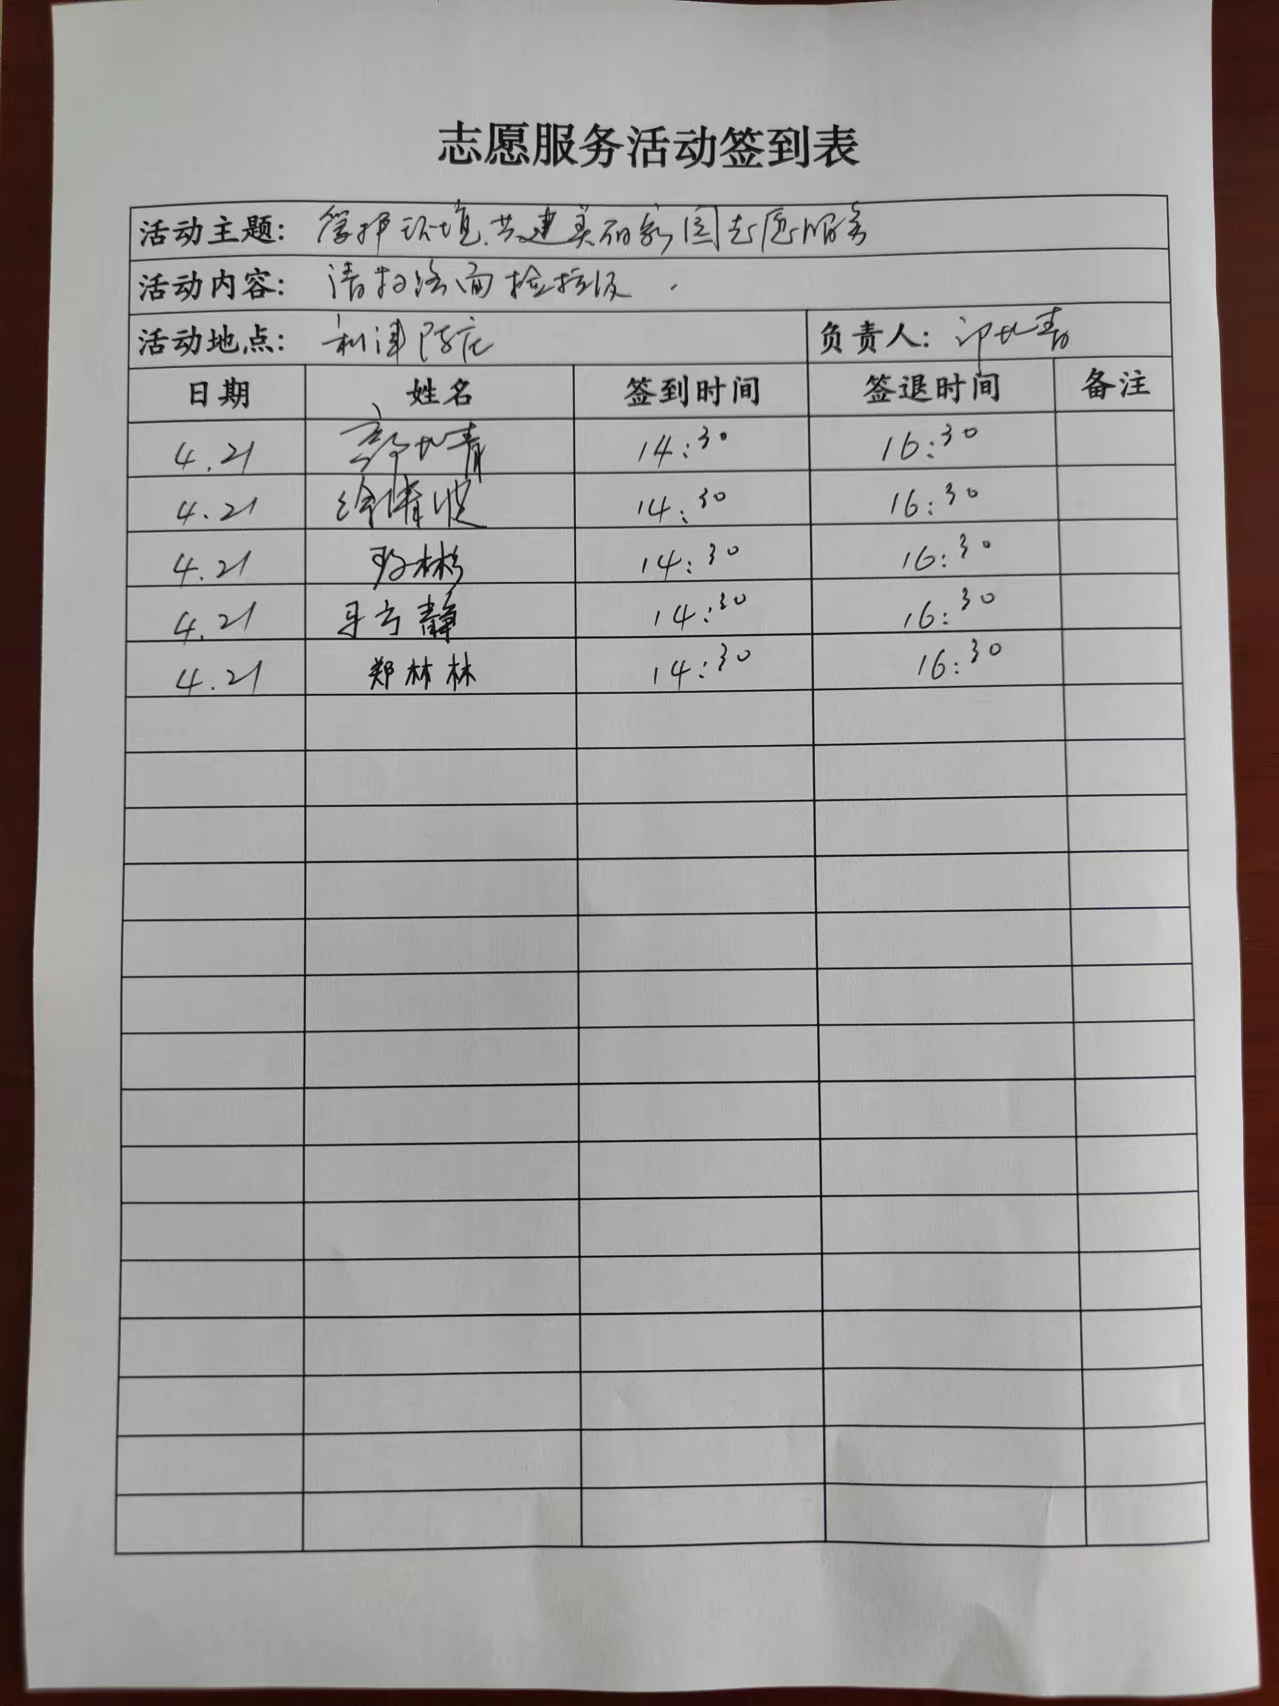 志愿服务活动签到表
活动主题：管护环境，共建美丽家园志愿服务
活动内容：清扫路面捡垃圾．
活动地点：利津陈庄 负责人：
日期 姓名 签到时间 签退时间 备注
4.21 14:30 16:30
4.21 14:30 16:30
4.21 14:30 16:30
4.21 14:30 16:30
4.21 郑林林 14:30 16:30